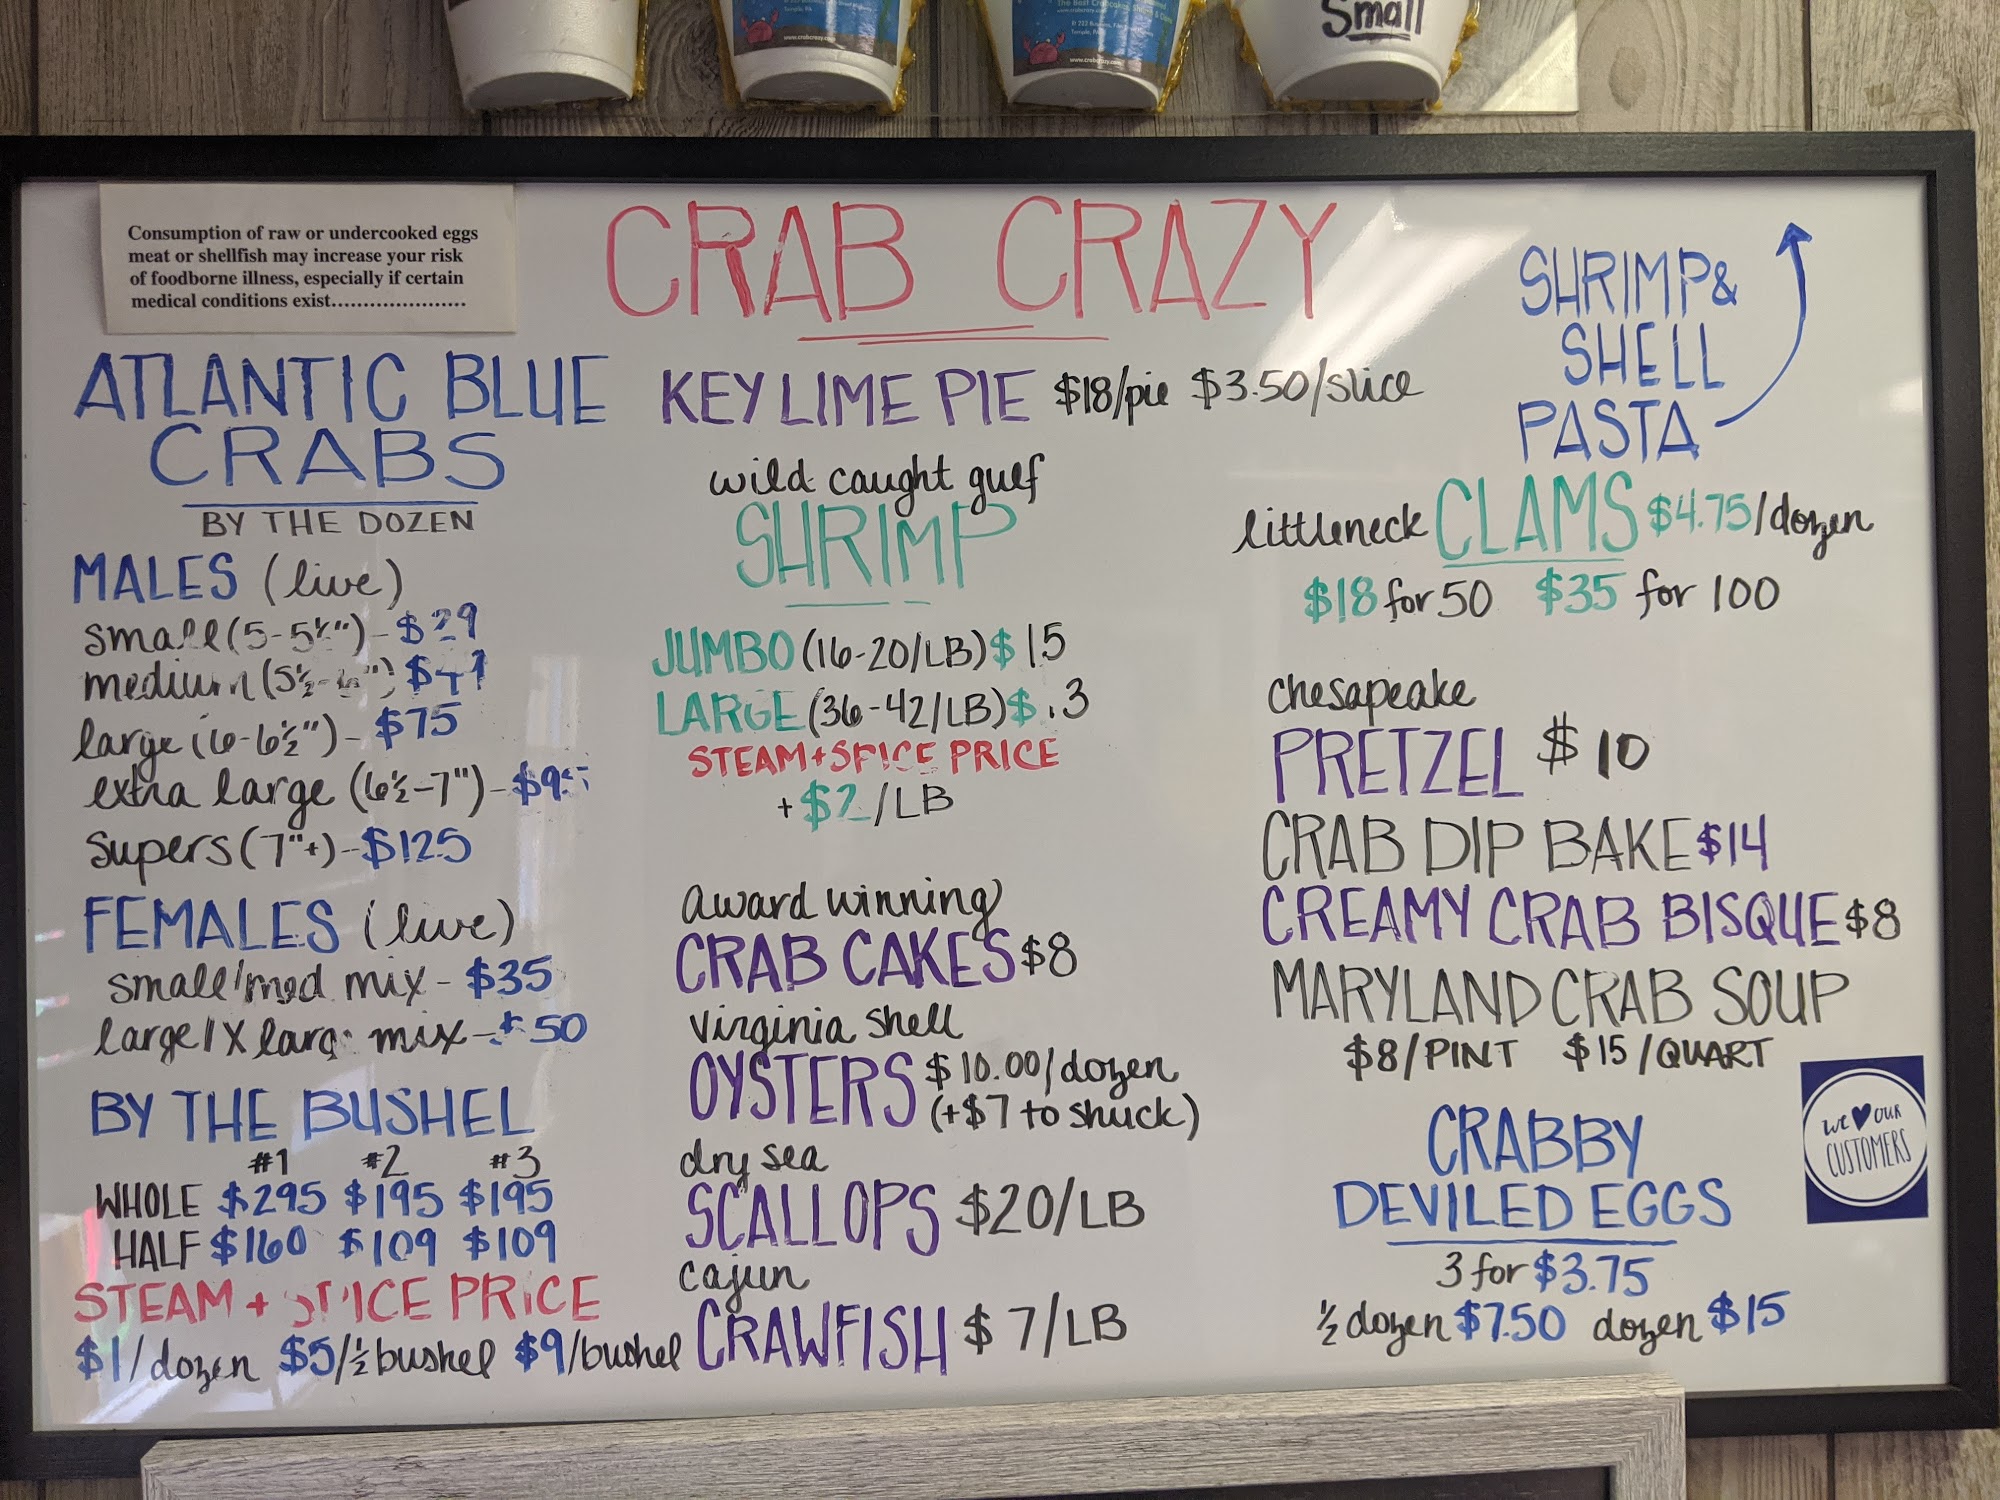 Small
www.crabcrazy.com
www.crabcrazy.com
Consumption of raw or undercooked eggs
meat or shellfish may increase your risk
of foodborne illness, especially if certain
medical conditions exist.....................
CRAB CRAZY
ATLANTIC BLUE
CRABS
BY THE DOZEN
MALES (live)
small (5-5½") - $29
medium (5½-6")
large (6-6½") - $75
extra large (6½-7") -
Supers (7"+) - $125
FEMALES (live)
small/med mix - $35
large/X large mix - $50
BY THE BUSHEL
#1 #2 #3
WHOLE $295 $195 $195
HALF $160 $109 $109
STEAM + SPICE PRICE
$1/dozen $5/½ bushel $9/bushel
KEY LIME PIE $18/pie $3.50/slice
wild caught gulf
SHRIMP
JUMBO (16-20/LB) $15
LARGE (36-42/LB)
STEAM + SPICE PRICE
+ $2/LB
award winning
CRAB CAKES $8
virginia shell
OYSTERS $10.00/dozen
(+$7 to shuck)
dry sea
SCALLOPS $20/LB
cajun
CRAWFISH $7/LB
SHRIMP &
SHELL
PASTA
littleneck CLAMS $4.75/dozen
$18 for 50 $35 for 100
chesapeake
PRETZEL $10
CRAB DIP BAKE $14
CREAMY CRAB BISQUE $8
MARYLAND CRAB SOUP
$8/PINT $15/QUART
CRABBY
DEVILED EGGS
3 for $3.75
½ dozen $7.50 dozen $15
we ♥ our
CUSTOMERS